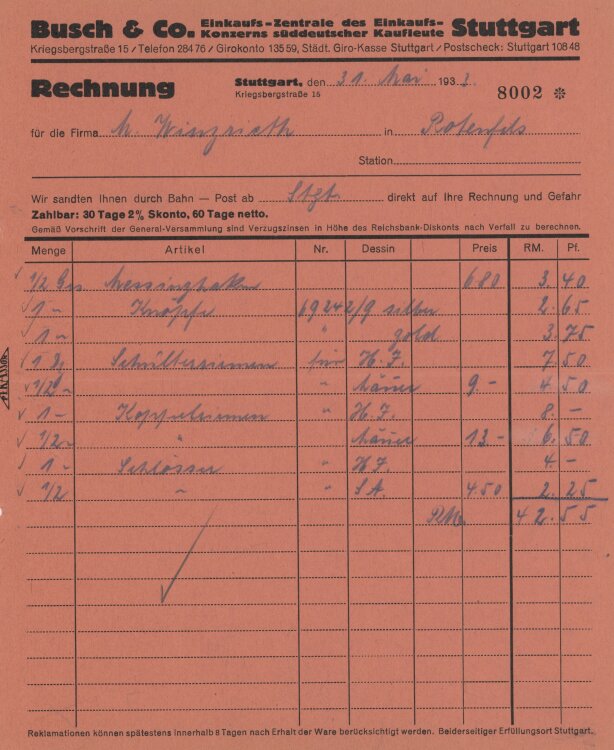 Busch & Co. Einkaufs-Zentrale des Einkaufs-Konzerns süddeutscher Kaufleute Stuttgart
Kriegsbergstraße 15 / Telefon 28476 / Girokonto 13559, Städt. Giro-Kasse Stuttgart / Postscheck: Stuttgart 10848
Rechnung
Stuttgart, den 31. Mai 1933.
Kriegsbergstraße 15
8002 *
für die Firma M. in Rotenfels
Station
Wir sandten Ihnen durch Bahn — Post ab Stgt. direkt auf Ihre Rechnung und Gefahr
Zahlbar: 30 Tage 2% Skonto, 60 Tage netto.
Gemäß Vorschrift der General-Versammlung sind Verzugszinsen in Höhe des Reichsbank-Diskonts nach Verfall zu berechnen.
Menge Artikel Nr. Dessin Preis RM. Pf.
1/2 Gros Messinghaken 6.80 3. 40
1 " Knöpfe 6924 2/9 silber 2. 65
1 " " gold 3. 75
1 Schulterriemen für H.J. 7. 50
1/2 " " Männer 9.- 4. 50
1 " Koppelriemen " H.J. 8. -
1/2 " " Männer 13.- 6. 50
1 " Schlösser " H.J. 4. -
1/2 " " S.A. 4.50 2. 25
RM. 42. 55
Reklamationen können spätestens innerhalb 8 Tagen nach Erhalt der Ware berücksichtigt werden. Beiderseitiger Erfüllungsort Stuttgart.